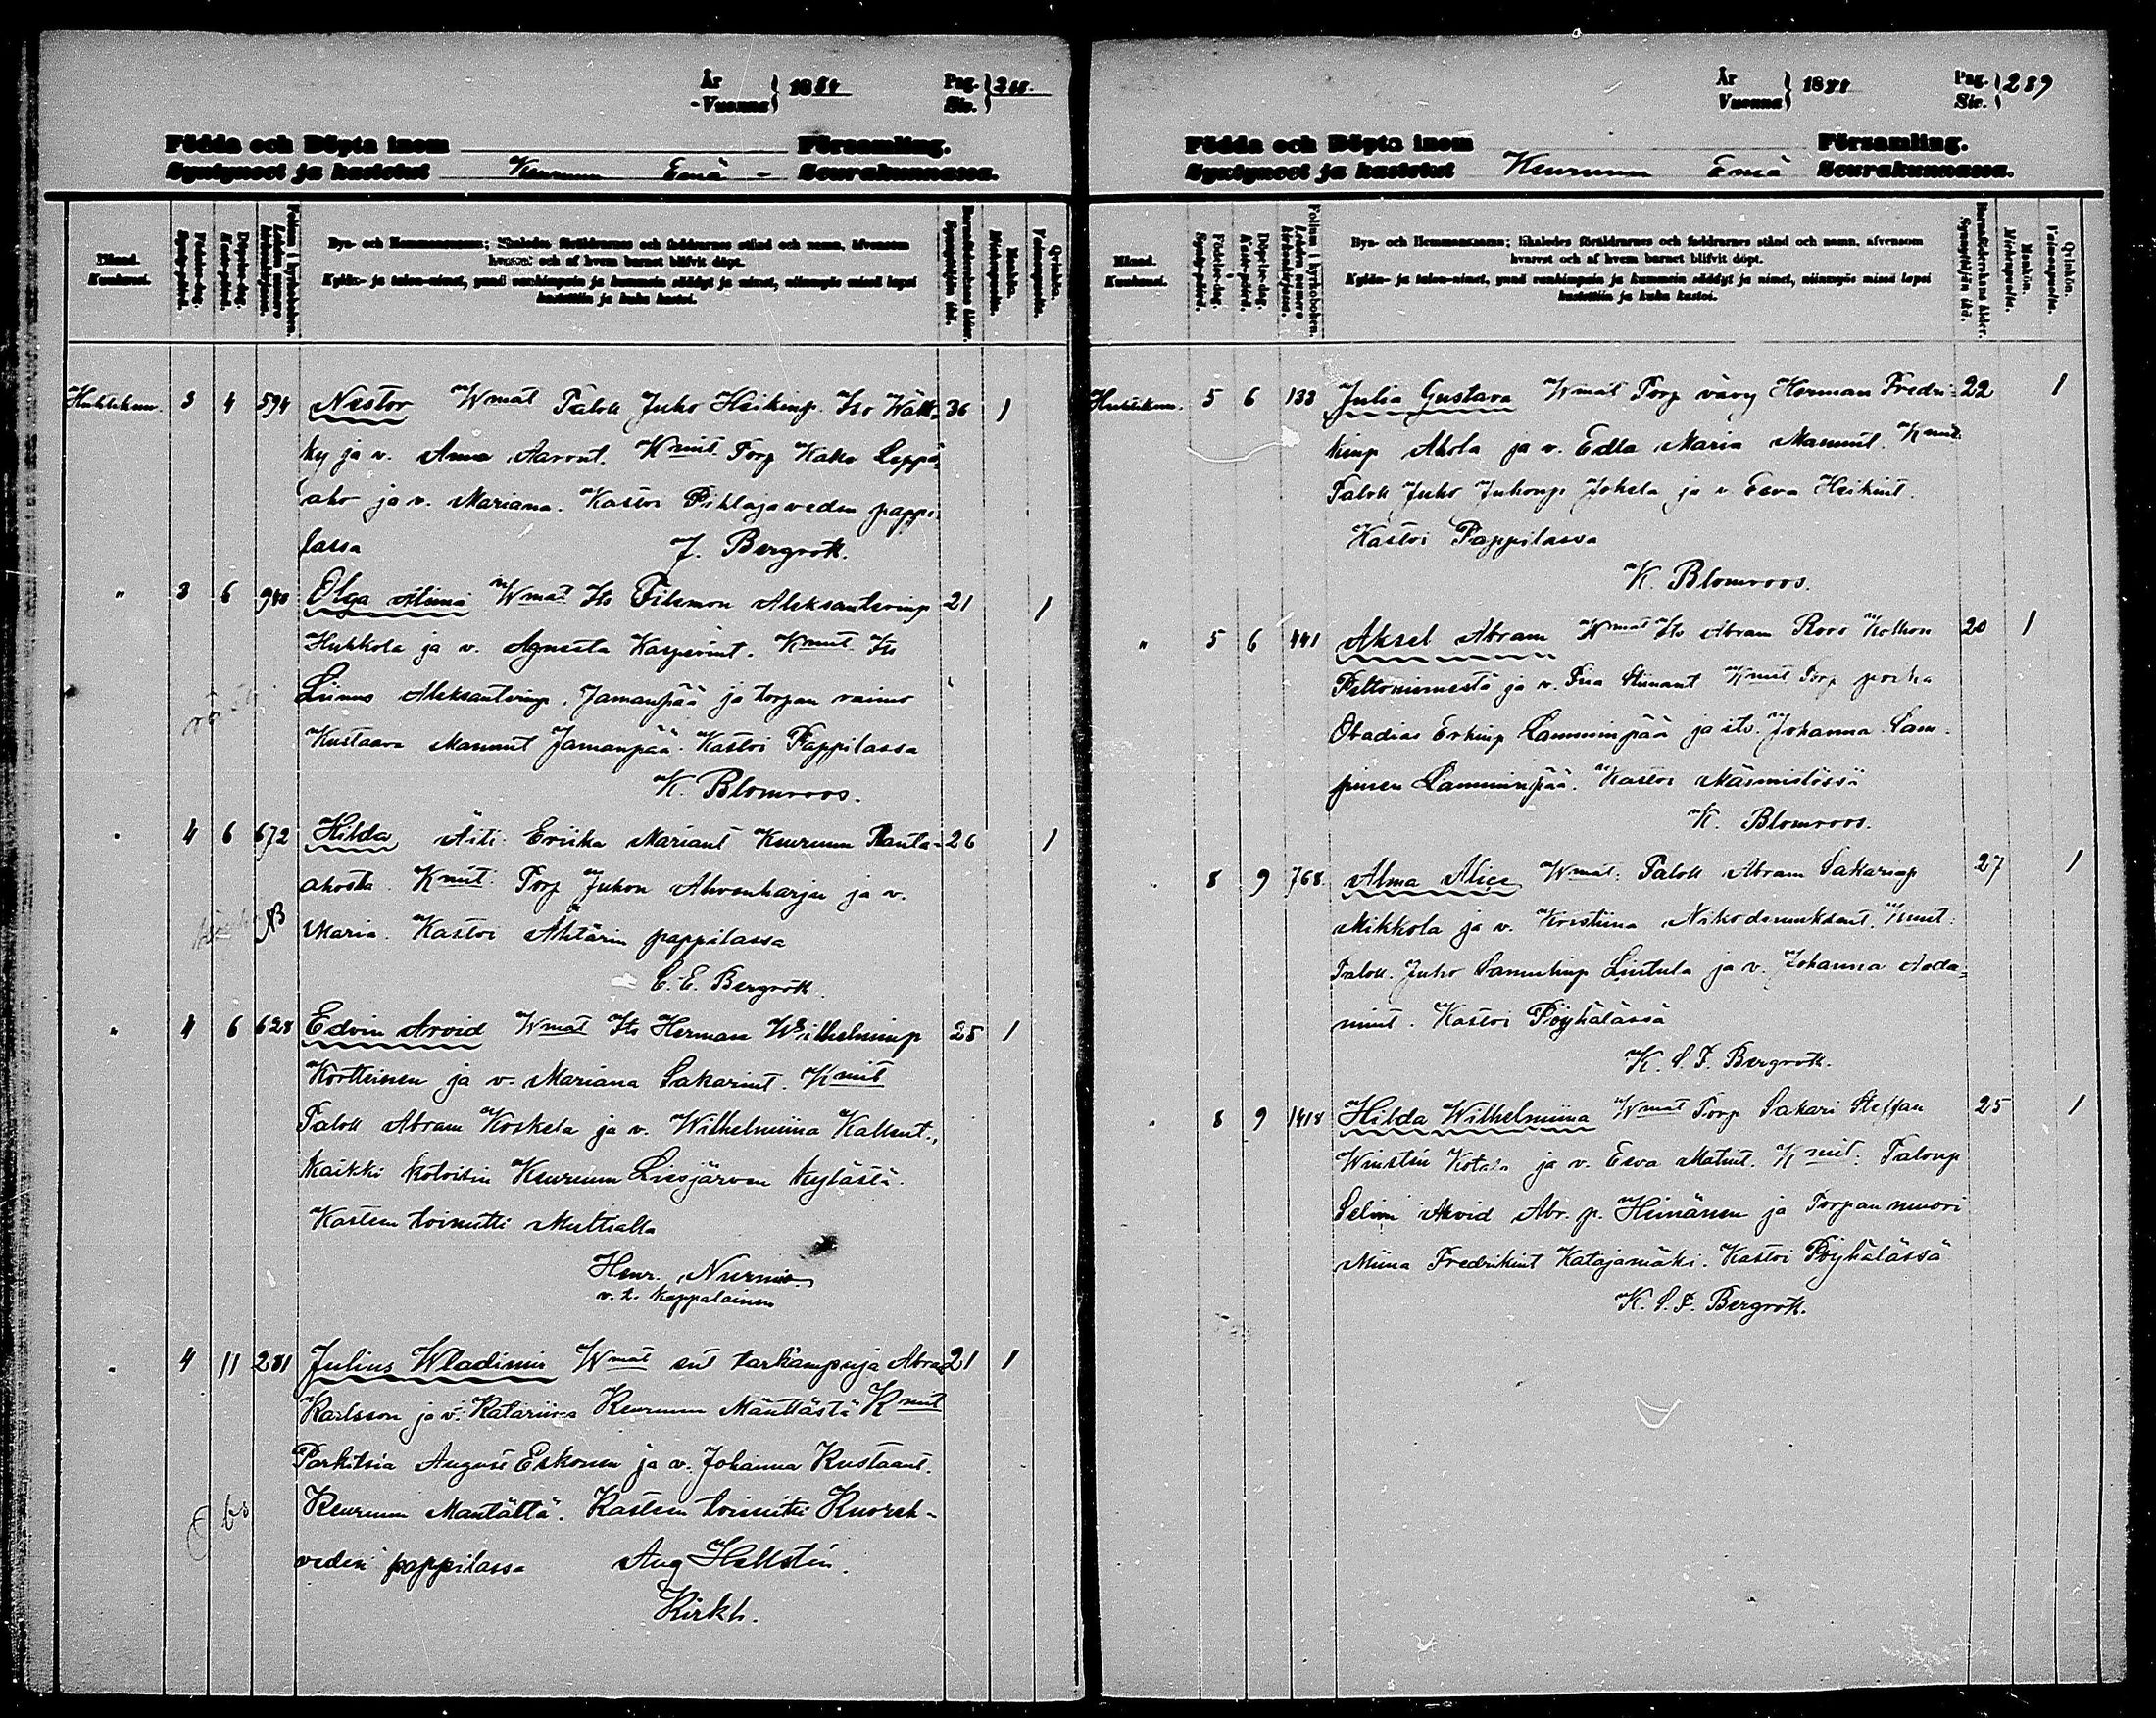 År
Vuonna } 1884 Pag. Siv. }
Födda och Döpta inom Församling.
Syntyneet ja kastetut Keuruun Emä - Seurakunnassa.
Månad. Kuukausi.
Födelse-dag. Synty-päivä.
Döpelse-dag. Kaste-päivä.
Folium i kyrkoboken. Lehden numero kirkonkirjassa.
Bya- och Hemmansnamn; likaledes föräldrarnes och faddrarnes stånd och namn, äfvensom
hvarest och af hvem barnet blifvit döpt.
Kylän- ja talon-nimet, ynnä vanhimpain ja kummein säädyt ja nimet, niinmyös missä lapsi
kastettiin ja kuka kastoi.
Barnaföderskans ålder. Synnyttäjän ikä.
Mankön. Miehenpuolta.
Qvinkön. Vaimonpuolta.
Huhtikuu. 3 4 594 Nestor Wmat Taloll Juho Heikinp. Iso Wätt- 36 1
ky ja v. Anna Aaront. Kmit Torp Kalle Leppä-
aho ja v. Mariana. Kastoi Pihlajaveden pappi-
lassa J. Bergroth.
" 3 6 940 Olga Miina Wmat Its Filemon Aleksanterinp 21 1
Huhkola ja v. Agneeta Kasperint. Kmit Its
Linus Aleksanterinp. Jamanpää ja torpan vaimo
Kustaava Manunt Jamanpää. Kastoi Pappilassa
K. Blomroos.
" 4 6 672 Hilda Äiti: Eriika Mariant Keuruun Ranta- 26 1
aholta. Kmit: Torp Juhon Ahvenharju ja v.
Maria. Kastoi Ähtärin pappilassa
C. E. Bergroth.
" 4 6 628 Edvin Arvid Wmat Its Herman Wilhelminp 25 1
Korttinen ja v. Mariana Sakarint. Kmit
Taloll Abram Koskela ja v. Wilhelmiina Kallent.,
kaikki kotoisin Keuruun Liesjärven kylästä.
Kasteen toimitti Multialla
Henr. Nurmio
v. t. kappalainen
" 4 11 281 Julius Wladimir Wmat Abra 21 1
Karlsson ja v. Katariina Keuruun Mänttästä Kmit
August Eskonen ja v. Johanna Kustaant.
Keuruun Mäntältä. Kasteen toimitti Kuoreh-
veden pappilassa Aug Hellstén.
Kirkh.
År
Vuonna } 1884 Pag. Siv. } 289
Födda och Döpta inom Församling.
Syntyneet ja kastetut Keuruun Emä Seurakunnassa.
Månad. Kuukausi.
Födelse-dag. Synty-päivä.
Döpelse-dag. Kaste-päivä.
Folium i kyrkoboken. Lehden numero kirkonkirjassa.
Bya- och Hemmansnamn; likaledes föräldrarnes och faddrarnes stånd och namn, äfvensom
hvarest och af hvem barnet blifvit döpt.
Kylän- ja talon-nimet, ynnä vanhimpain ja kummein säädyt ja nimet, niinmyös missä lapsi
kastettiin ja kuka kastoi.
Barnaföderskans ålder. Synnyttäjän ikä.
Mankön. Miehenpuolta.
Qvinkön. Vaimonpuolta.
Huhtikuu. 5 6 133 Julia Gustava Wmat Torp vävy Herman Fredri- 22 1
kinp Ahola ja v. Edla Maria Manunt. Kmit
Taloll Juho Juhonp. Jokela ja v. Eeva Heikint.
Kastoi Pappilassa
K. Blomroos.
" 5 6 441 Aksel Abram Wmat Its Abram Roos Kolhon 20 1
Peltoniemestä ja v. Kmit Torp poika
Obadias Erkinp Lamminpää ja its. Johanna Lam-
pinen Lamminpää. Kastoi Mäsmistössä
K. Blomroos.
" 8 9 768 Alma Alice Wmat: Taloll Abram Sakarinp 27 1
Mikkola ja v. Kristiina Nikodemuksent. Kmit:
Taloll. Juho Samulinp Lintula ja v. Johanna Aada-
mint. Kastoi Pöyhälässä
K. S. F. Bergroth.
" 8 9 1418 Hilda Wilhelmiina Wmat Torp Sakari Steffan 25 1
Winstén Kotala ja v. Eeva Matint. Kmit: Talonp
Selim Arvid Abr. p. Heinänen ja Torpan muori
Miina Fredrikint Katajamäki. Kastoi Pöyhälässä
K. S. F. Bergroth.